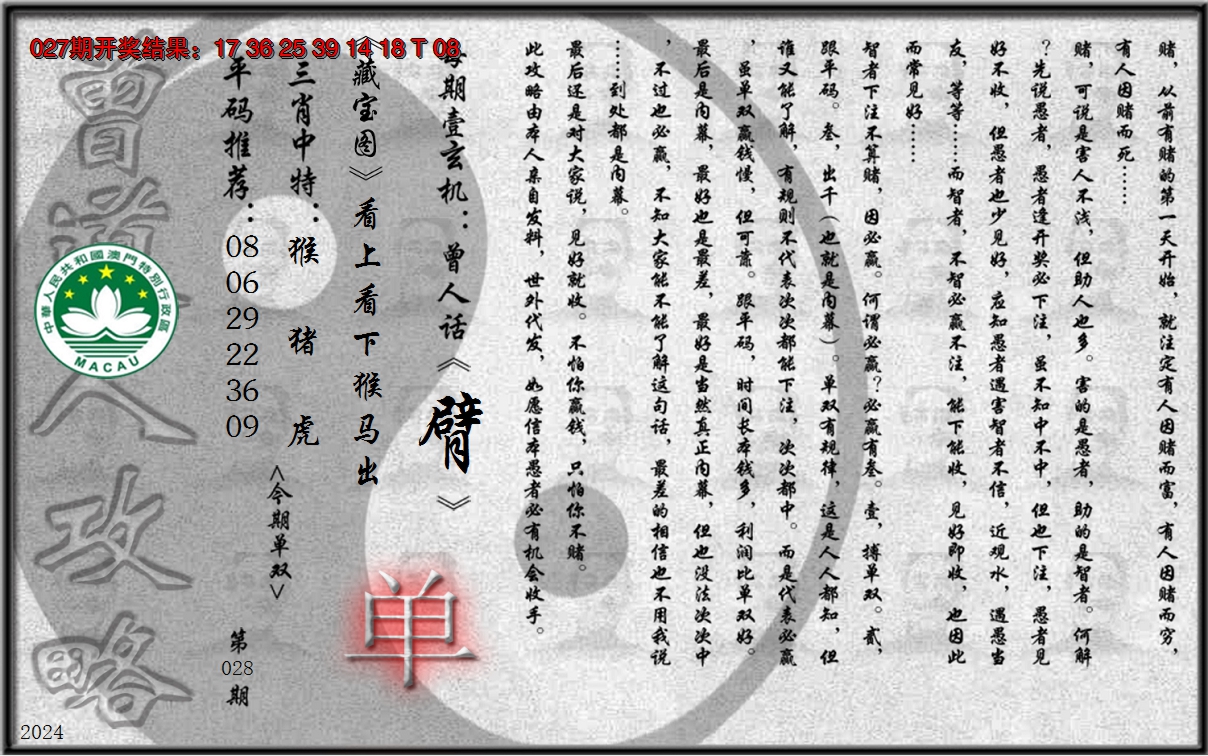 027期开奖结果：17 36 25 39 14 18 T 08
赌，从前有赌的第一天开始，就注定有人因赌而富，有人因赌而穷，
有人因赌而死……
赌，可说是害人不浅，但助人也多。害的是愚者，助的是智者。何解
？先说愚者，愚者逢开奖必下注，虽不知中不中，但也下注，愚者见
好不收，但愚者也少见好，应知愚者遇害智者不信，近观水，遇愚当
友，等等……而智者，不智必赢不注，能下能收，见好即收，也因此
而常见好……
智者下注不算赌，因必赢。何谓必赢？必赢有叁。壹，搏单双。贰，
跟平码。叁，出千（也就是内幕）。单双有规律，这是人人都知，但
谁又能了解，有规则不代表次次都能下注，次次都中。而是代表必赢
，虽单双赢钱慢，但可靠。跟平码，时间长本钱多，利润比单双好。
最后是内幕，最好也是最差，最好是当然真正内幕，但也没法次次中
，不过也必赢，不知大家能不能了解这句话，最差的相信也不用我说
……到处都是内幕。
最后还是对大家说，见好就收。不怕你赢钱，只怕你不赌。
此攻略由本人亲自发料，世外代发，如愿信本愚者必有机会收手。
每期壹玄机：曾人话《臂》
《藏宝图》看上看下猴马出
单
三肖中特：猴 猪 虎
<今期单双>
平码推荐：
08
06
29
22
36
09
第
028
期
曾道人攻略
中華人民共和國澳門特別行政區
MACAU
2024